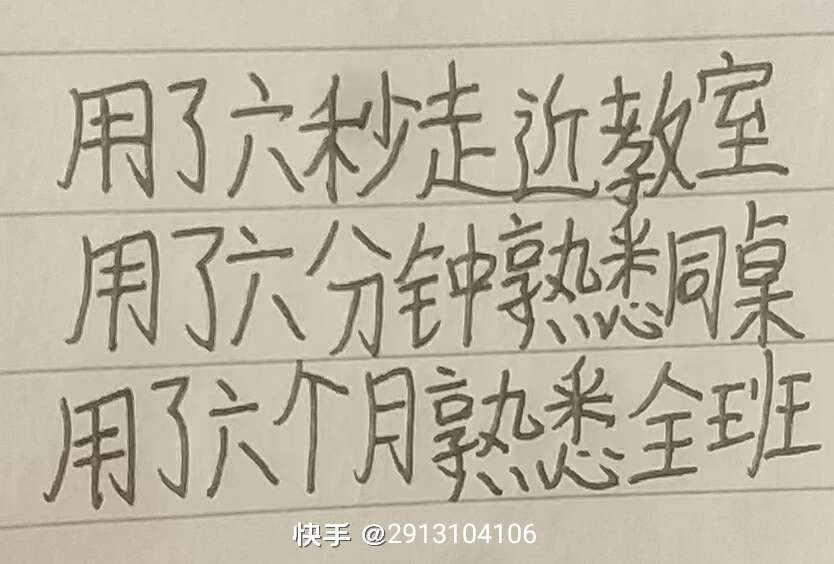 用了六秒走近教室
用了六分钟熟悉同桌
用了六个月熟悉全班
快手 @2913104106